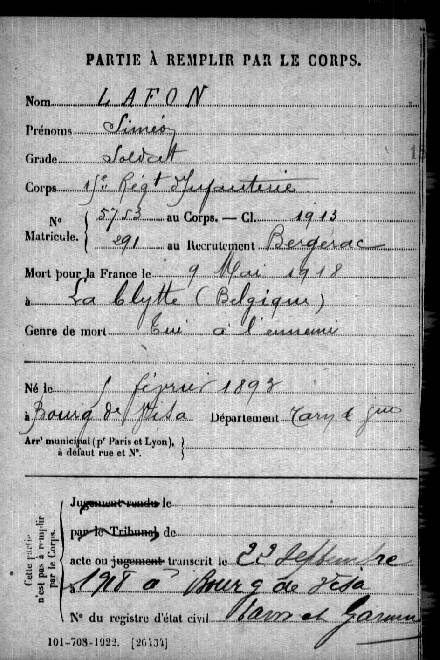 PARTIE À REMPLIR PAR LE CORPS.
Nom LAFON
Prénoms Siméon
Grade Soldat
Corps 15e Régt d'Infanterie
No Matricule. { 5753 au Corps. — Cl. 1913
291 au Recrutement Bergerac
Mort pour la France le 9 Mai 1918
à La Clytte (Belgique)
Genre de mort Tué à l'ennemi
Né le 5 février 1893
à Bourg de Visa Département Tarn & Gne
Arrt municipal (pr Paris et Lyon), }
à défaut rue et No.
Cette partie n'est pas à remplir par le Corps.
Jugement rendu le
par le Tribunal de
acte ou jugement transcrit le 22 Septembre
à 1918 à Bourg de Visa
No du registre d'état civil Tarn et Garonne
101-708-1922. [26434]